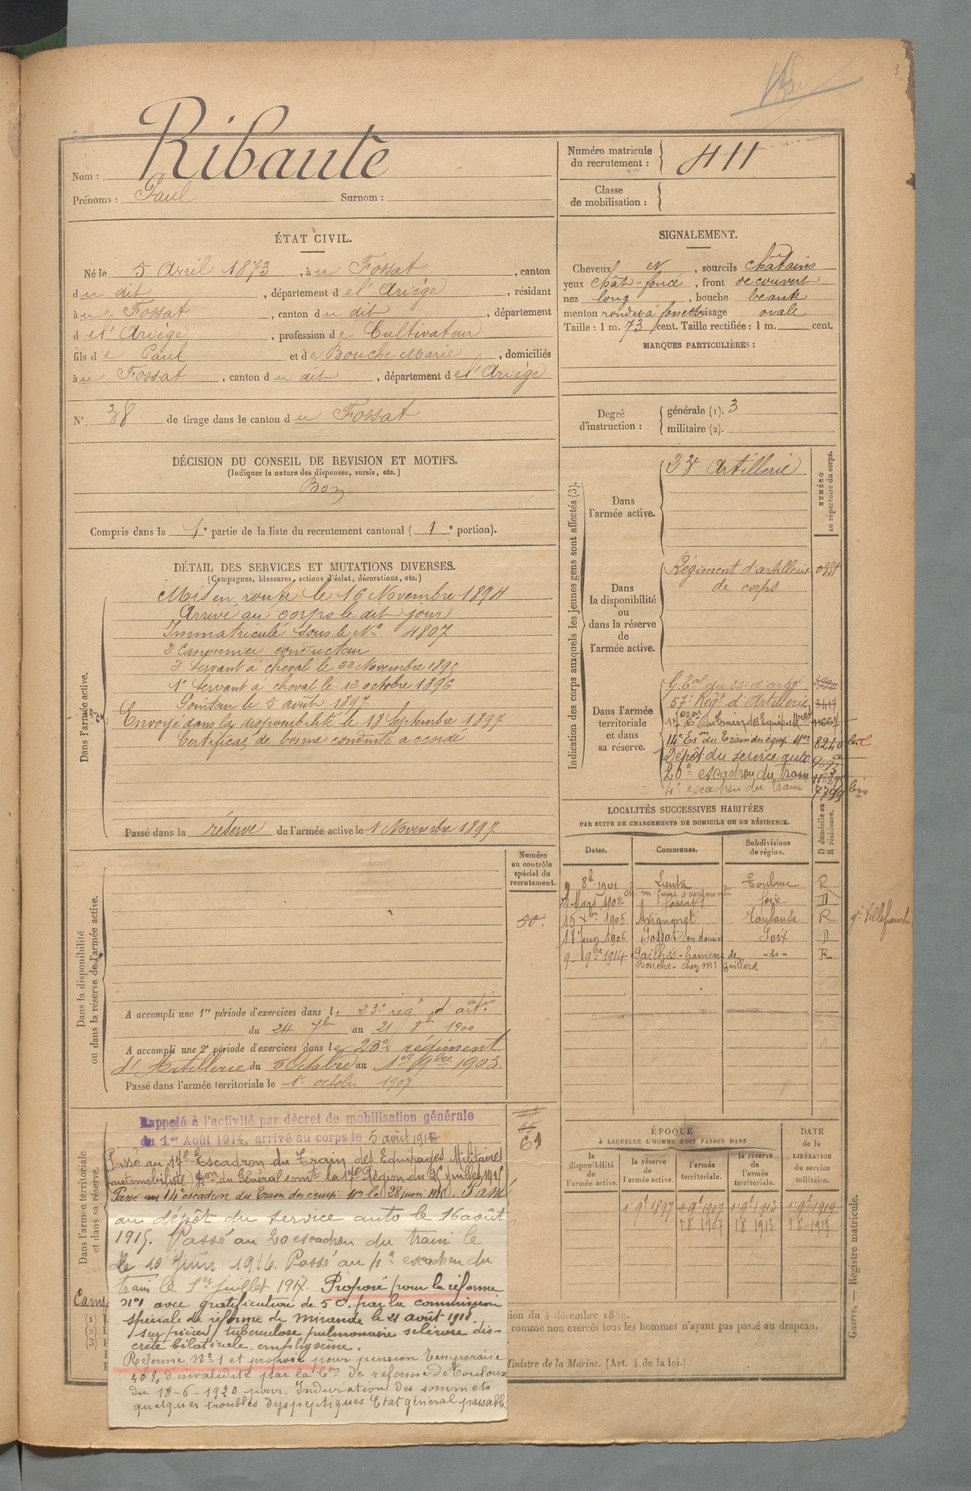 Nom : Ribaute
Prénoms : Paul Surnom :
Numéro matricule du recrutement : 411
Classe de mobilisation :
ÉTAT CIVIL.
Né le 5 Avril 1873, à u Fossat, canton
d u dit, département d e l'Ariége, résidant
à u Fossat, canton d u dit, département
d e l'Ariége, profession d e Cultivateur
fils d e Paul et d e Bouche Marie, domiciliés
à u Fossat, canton d u dit, département d e l'Ariége
N°. 38 de tirage dans le canton d u Fossat
DÉCISION DU CONSEIL DE REVISION ET MOTIFS.
(Indiquer la nature des dispenses, sursis, etc.)
Bon
Compris dans la 1e partie de la liste du recrutement cantonal (1e portion).
SIGNALEMENT.
Cheveux et, sourcils châtains
yeux chât-foncé, front découvert
nez long, bouche béante
menton rond à fossette visage ovale
Taille : 1 m. 73 cent. Taille rectifiée : 1 m. cent.
MARQUES PARTICULIÈRES :
Degré d'instruction : générale (1). 3
militaire (2).
DÉTAIL DES SERVICES ET MUTATIONS DIVERSES.
(Campagnes, blessures, actions d'éclat, décorations, etc.)
Dans l'armée active.
Mis en route le 16 Novembre 1894
Arrivé au corps le dit jour
Immatriculé sous le N° 4807
2e Canonnier conducteur
2e Servant à cheval le 22 Novembre 1895
1er Servant à cheval le 12 octobre 1896
Pointeur le 5 avril 1897
Envoyé dans la disponibilité le 18 Septembre 1897
Certificat de bonne conduite accordé
Passé dans la réserve de l'armée active le 1 Novembre 1897
Numéro au contrôle spécial du recrutement.
Dans la disponibilité ou dans la réserve de l'armée active.
A accompli une 1re période d'exercices dans le 23e rég. d'art.
du 24 7bre au 21 8bre 1900
A accompli une 2e période d'exercices dans le 23e régiment
d'Artillerie du 5 Octobre au 1er 9bre 1903
Passé dans l'armée territoriale le 1er octobre 1907
Dans l'armée territoriale et dans sa réserve.
Rappelé à l'activité par décret de mobilisation générale
du 1er Août 1914, arrivé au corps le 5 août 1914
Passé au 17e Escadron du Train des Equipages Militaires
Passé au 14e escadron du train des équip. mres le 28 juin 1915. Passé
au dépôt du service auto le 16 août
1915. Passé au 20 escadron du train le
le 10 juin 1916. Passé au 4e escadron du
train le 1er juillet 1917. Proposé pour la réforme
n°1 avec gratification de 5 C. par la commission
spéciale de réforme de Mirande le 21 août 1918.
tuberculose pulmonaire scléreuse dis-
crète bilatérale. emphysème.
Réformé N° 1 et proposé pour pension temporaire
40 % d'invalidité par la Con de réforme de Toulouse
du 18-6-1920 pour. Induration des sommets
quelques troubles dyspeptiques Etat général passable
Indication des corps auxquels les jeunes gens sont affectés (3).
NUMÉRO au répertoire du corps.
Dans l'armée active. 23e Artillerie
Dans la disponibilité ou dans la réserve de l'armée active.
Régiment d'artillerie
de corps
Dans l'armée territoriale et dans sa réserve.
57e Régt d'Artillerie
14e Eson du Train des équip. Mres 8240
Dépôt du service auto
20e escadron du train
4e escadron du train
LOCALITÉS SUCCESSIVES HABITÉES
PAR SUITE DE CHANGEMENTS DE DOMICILE OU DE RÉSIDENCE.
Dates. Communes. Subdivisions de région. D domicile ou R résidence.
9 8b 1901 Lanta Toulouse R
Mars 1902 Fossat Foix D
15 xbre 1905 Avignonet Toulouse R
18 Juin 1906 Fossat Foix D
9 9bre 1914 Gailhès-hameau de -do- R
Bouche - chez Mr
ÉPOQUE
À LAQUELLE L'HOMME DOIT PASSER DANS
DATE de la LIBÉRATION du service militaire.
la disponibilité de l'armée active. la réserve de l'armée active. l'armée territoriale. la réserve de l'armée territoriale.
1 9b 1897 1 9b 1907 1 9b 1913 1 9b 1919
1 8 1907 1 8 1913 1 8 1919
comme non exercés tous les hommes n'ayant pas passé au drapeau.
Ministre de la Marine. (Art. 4 de la loi.)
Guerre. — Registre matricule.